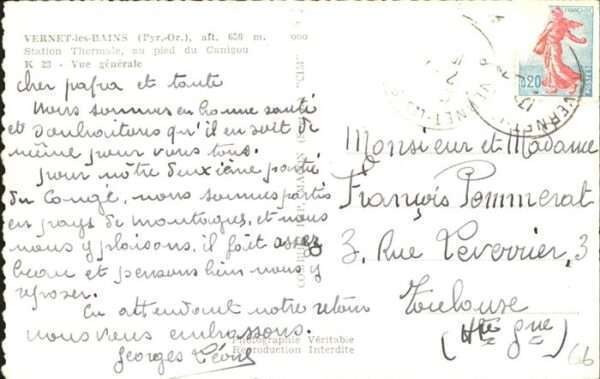 VERNET-les-BAINS (Pyr.-Or.), alt. 650 m.
Station Thermale, au pied du Canigou
K 23 - Vue générale
cher papa et tante
Nous sommes en bonne santé
et souhaitons qu'il en soit de
même pour vous tous.
pour nôtre deuxième partie
du Congé, nous sommes partis
en pays de montagnes, et nous
nous y plaisons, il fait assez
beau et pensons bien nous y
reposer.
En attendant notre retour
nous vous embrassons.
Georges
Photographie Véritable
Reproduction Interdite
0,20
POSTES
VERNET-LES
Monsieur et Madame
François Pommerat
3, Rue Leverrier, 3
Toulouse
(Hte Gne)